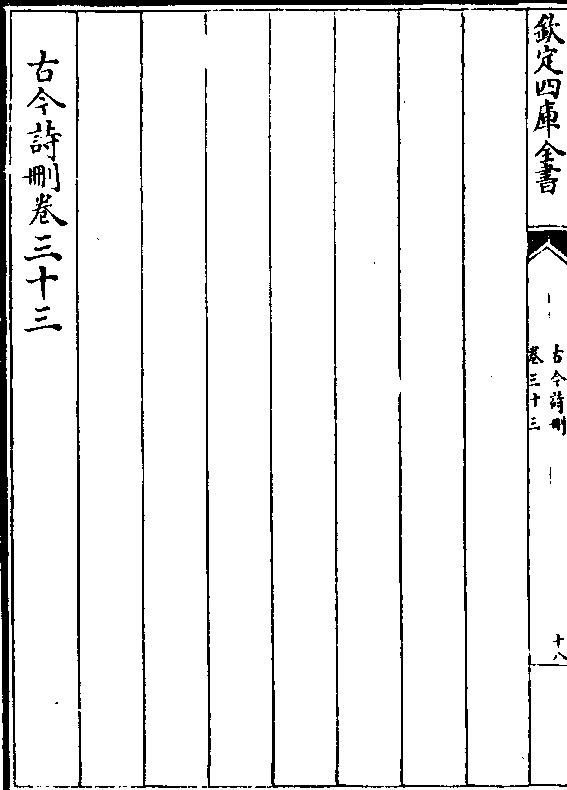 欽定四庫全書
古今詩刪
卷三十三
十八
古今詩刪卷三十三